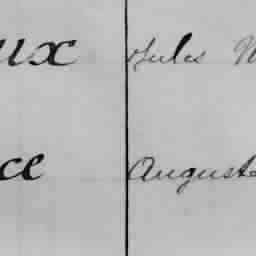 ux Jules
ce Auguste